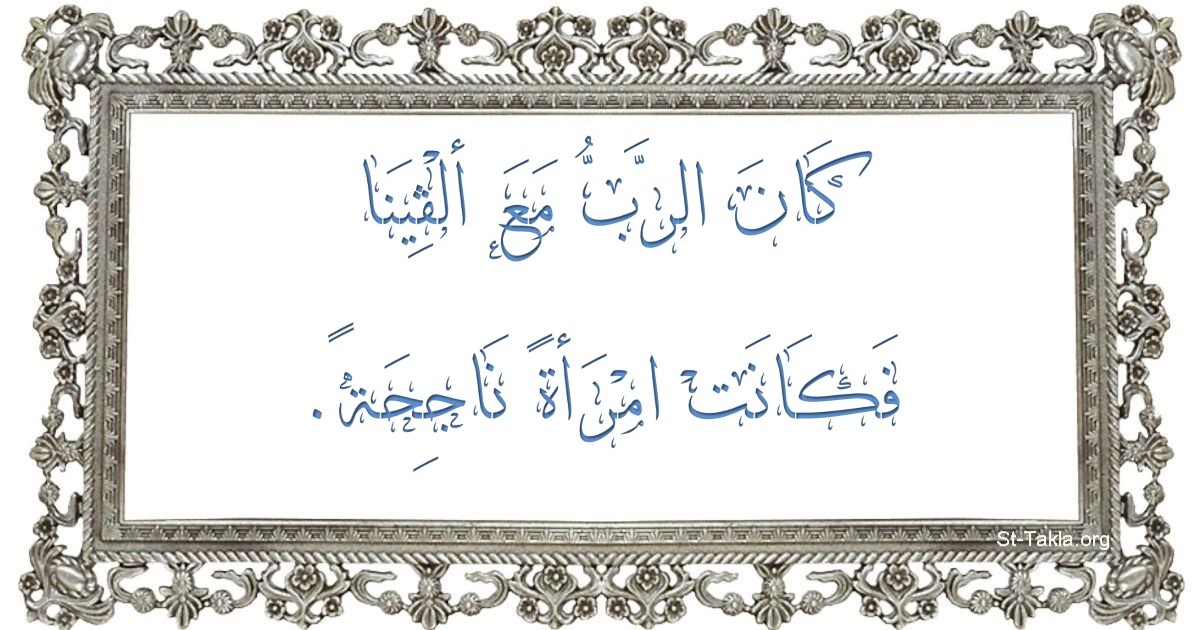 كَانَ الرَّبُّ مَعَ أَلْڤِينَا
فَكَانَتْ امْرَأَةً نَاجِحَةً.
St-Takla.org